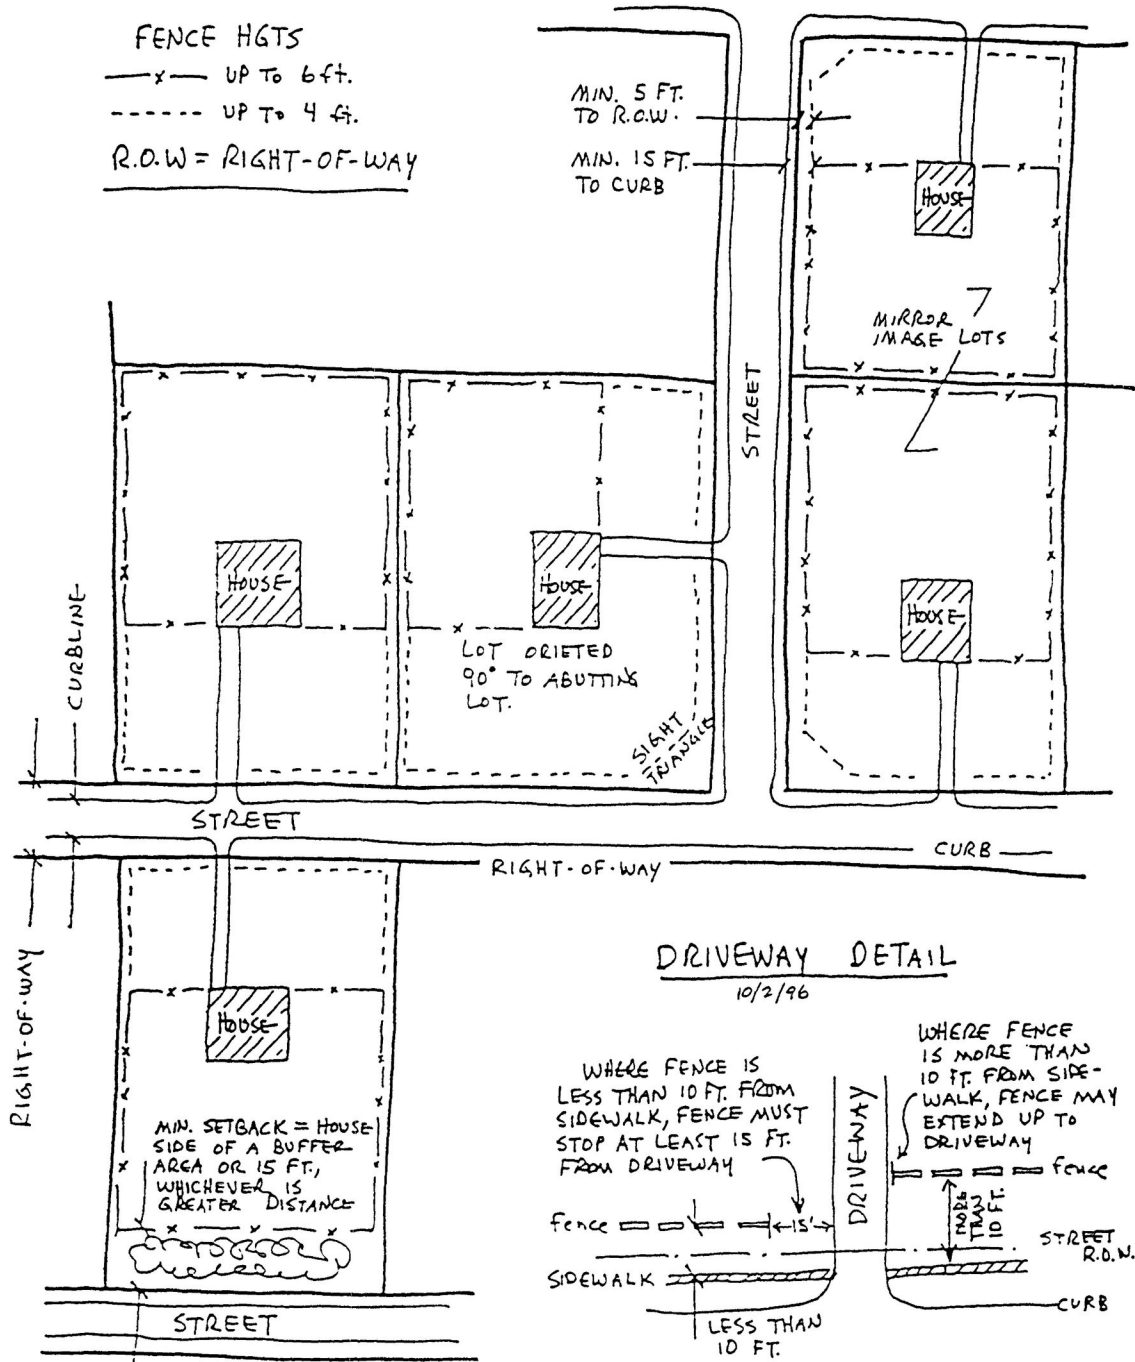 FENCE HGTS
—x— UP TO 6 ft.
----- UP TO 4 ft.
R.O.W = RIGHT-OF-WAY
MIN. 5 FT.
TO R.O.W.
MIN. 15 FT.
TO CURB
HOUSE
MIRROR
IMAGE LOTS
STREET
HOUSE
HOUSE
HOUSE
LOT ORIETED
90° TO ABUTTING
LOT.
SIGHT
TRIANGLE
CURBLINE
STREET
CURB
RIGHT-OF-WAY
RIGHT-OF-WAY
HOUSE
MIN. SETBACK = HOUSE
SIDE OF A BUFFER
AREA OR 15 FT.,
WHICHEVER IS
GREATER DISTANCE
STREET
DRIVEWAY DETAIL
10/2/96
WHERE FENCE IS
LESS THAN 10 FT. FROM
SIDEWALK, FENCE MUST
STOP AT LEAST 15 FT.
FROM DRIVEWAY
DRIVEWAY
WHERE FENCE
IS MORE THAN
10 FT. FROM SIDE-
WALK, FENCE MAY
EXTEND UP TO
DRIVEWAY
fence
fence
15'
MORE
THAN
10 FT.
STREET
R.O.W.
SIDEWALK
CURB
LESS THAN
10 FT.